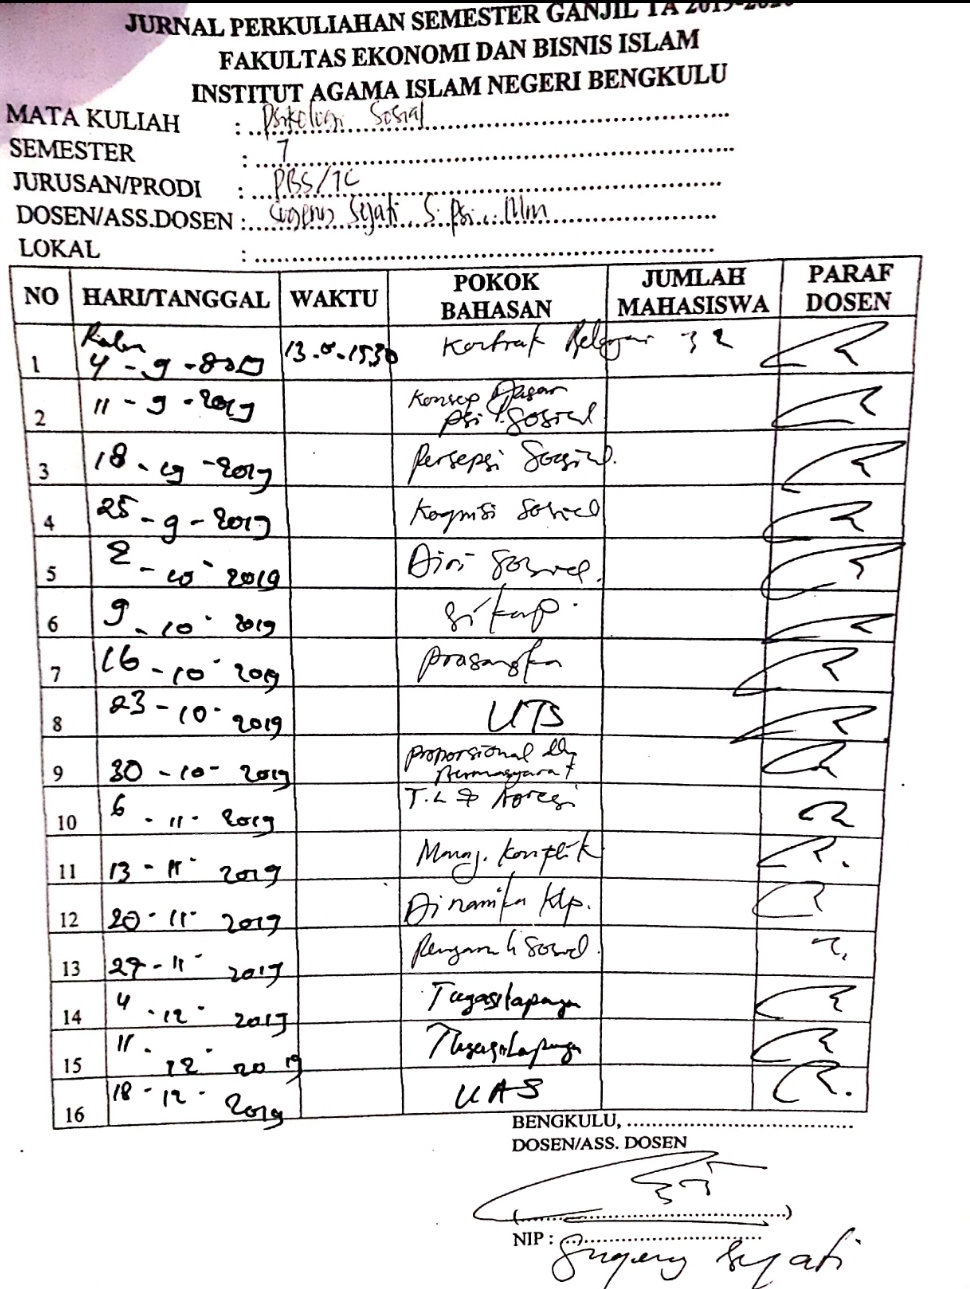 JURNAL PERKULIAHAN SEMESTER GANJIL TA 2019-2020
FAKULTAS EKONOMI DAN BISNIS ISLAM
INSTITUT AGAMA ISLAM NEGERI BENGKULU
MATA KULIAH : Psikologi Sosial
SEMESTER : 7
JURUSAN/PRODI : PBS/7C
DOSEN/ASS.DOSEN : Sugeng Sejati S.Psi., MM
LOKAL :
NO HARI/TANGGAL WAKTU POKOK BAHASAN JUMLAH MAHASISWA PARAF DOSEN
1 Rabu 4-9-2019 13.0-1530 Kontrak Belajar 32
2 11-9-2019 Konsep Dasar Psi. Sosial
3 18-09-2019 Persepsi Sosial.
4 25-9-2019 Kognisi Sosial
5 2-10-2019 Diri Sosial.
6 9-10-2019 Sikap
7 16-10-2019 Prasangka
8 23-10-2019 UTS
9 30-10-2019 Proporsional dlm Bermasyarakat
10 6-11-2019 T.L & Agresi
11 13-11-2019 Manaj. Konflik
12 20-11-2019 Dinamika Klp.
13 27-11-2019 Pengaruh Sosial.
14 4-12-2019 Tugas lapangan
15 11-12-2019 Tugas Lapangan
16 18-12-2019 UAS
BENGKULU, ..................
DOSEN/ASS. DOSEN
(..................)
NIP : ..................
Sugeng Sejati